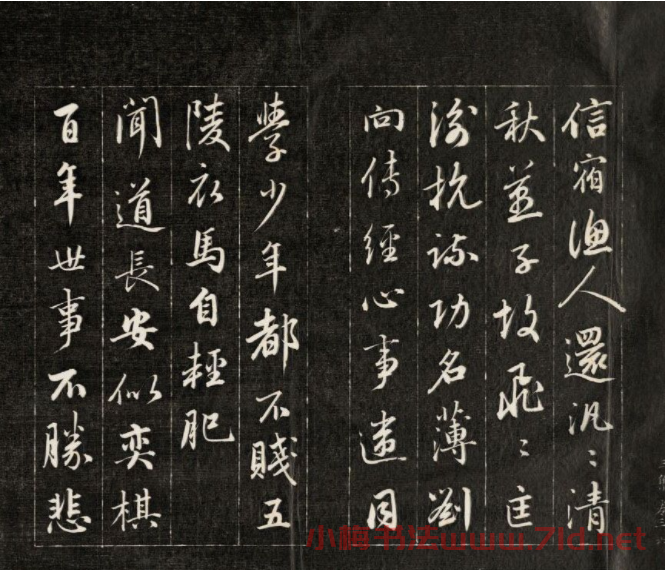 信宿漁人還汎〻清
秋燕子故飛〻匡
衡抗疏功名薄劉
向傳經心事違同
學少年都不賤五
陵衣馬自輕肥
聞道長安似奕棋
百年世事不勝悲
书法www.7ld.net